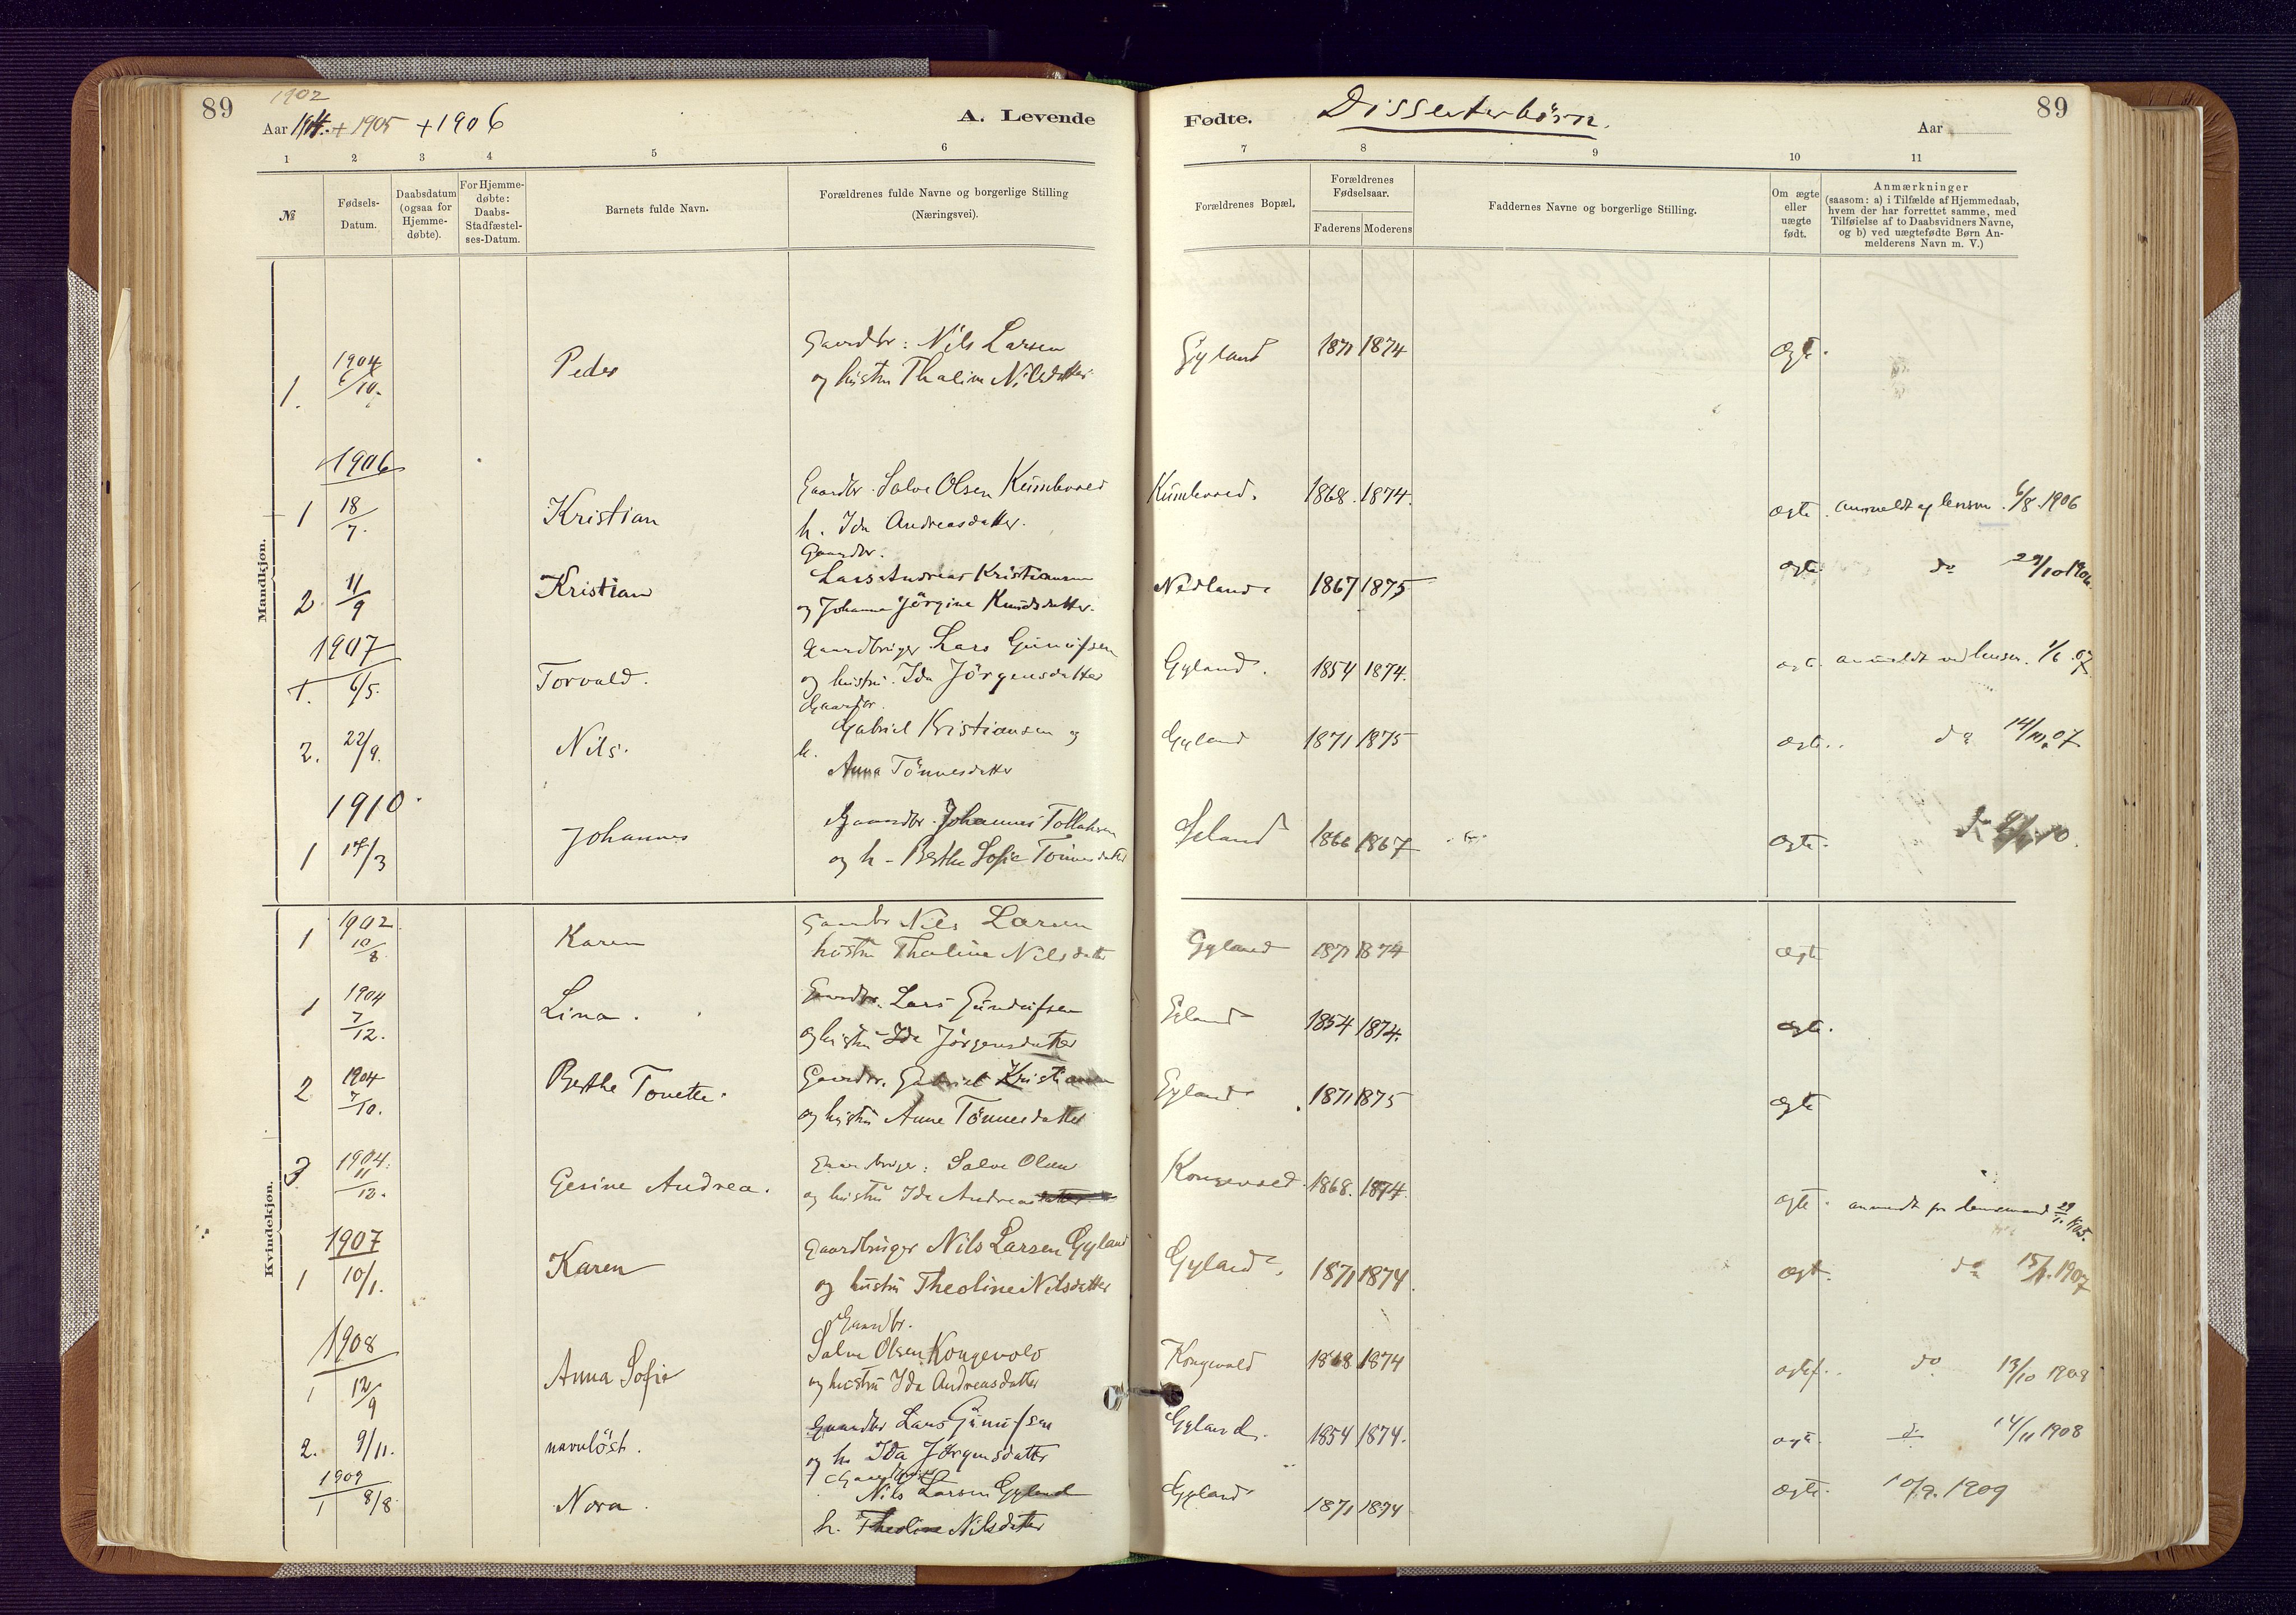 89
1902
Aar 1904. + 1905 + 1906
A. Levende
Fødte.
Dissenterbörn.
Aar
89
1 2 3 4 5 6 7 8 9 10 11
№
Fødsels-
Datum.
Daabsdatum
(ogsaa for
Hjemme-
døbte).
For Hjemme-
døbte:
Daabs-
Stadfæstel-
ses-Datum.
Barnets fulde Navn.
Forældrenes fulde Navne og borgerlige Stilling
(Næringsvei).
Forældrenes Bopæl.
Forældrenes
Fødselsaar.
Faderens Moderens
Faddernes Navne og borgerlige Stilling.
Om ægte
eller
uægte
født.
Anmærkninger
(saasom: a) i Tilfælde af Hjemmedaab,
hvem der har forrettet samme, med
Tilføielse af to Daabsvidners Navne,
og b) ved uægtefødte Børn An-
melderens Navn m. V.)
Mandkjøn.
1904
1. 6/10. Peder
Gaardbr: Nils Larsen
og hustru Thaline Nilsdatter
Gyland 1871 1874 ægte.
1906
1 18/7. Kristian
Gaardbr. Salve Olsen
h. Ida Andreasdatter.
1868. 1874. ægte. anmeldt af lensm. 6/8. 1906
2 11/9 Kristian
Gaardbr.
Lars Andreas Kristiansen
og Johanne Jörgine Knudsdatter.
Nedland. 1867 1875 ægte. do 29/10 1906.
1907
1. 6/5. Torvald.
Gaardbruger Lars
og hustru. Ida Jörgensdatter
Gyland. 1854 1874. ægte. anmeldt ved lensm. 1/6. 07
2. 22/9. Nils.
Gaardbr.
Gabriel Kristiansen og
h.
Anna Tönnesdatter
Gyland 1871 1875 ægte. do 14/10. 07
1910.
1 /3 Johannes
Gaardbr. Johannes
og h. Berthe Sofie Tönnesdatter
1866 1867 ægte. 10.
Kvindekjøn.
1902
1 10/8 Karen
Gaardbr Nils Larsen
hustru Thaline Nilsdatter
Gyland 1871 1874 ægte
1904
1 7/12. Lina.
Gaardbr. Lars
og hustru Ida Jörgensdatter
1854 1874. ægte.
1904
2 7/10. Berthe Tonette.
Gaardbr. Gabriel Kristiansen
og hustru Anne Tönnesdatter
Gyland 1871 1875 ægte
1904.
3 11/12. Gesine Andrea.
Gaardbruger: Salve Olsen
og hustru Ida Andreasdatter
Kongevold. 1868. 1874. ægte. anmeldt fra lensmand 1905.
1907
1 10/1. Karen
Gaardbruger Nils Larsen Gyland
og hustru Theoline Nilsdatter
Gyland. 1871 1874. ægte. do 15/1. 1907
1908
1 12/9 Anna Sofie
Gaardbr.
Salve Olsen Kongevold
og hustru Ida Andreasdatter
Kongevold 1868 1874 do 13/10 1908
2. 9/11. navnlöst.
Gaardbr Lars
og h. Ida Jörgensdatter
Gyland. 1854 1874. ægte. do 14/11 1908
1909
1 8/8. Nora.
Gaardbruger
Nils Larsen Gyland
h. Theoline Nilsdatter
Gyland 1871 1874 ægte. 10/9. 1909